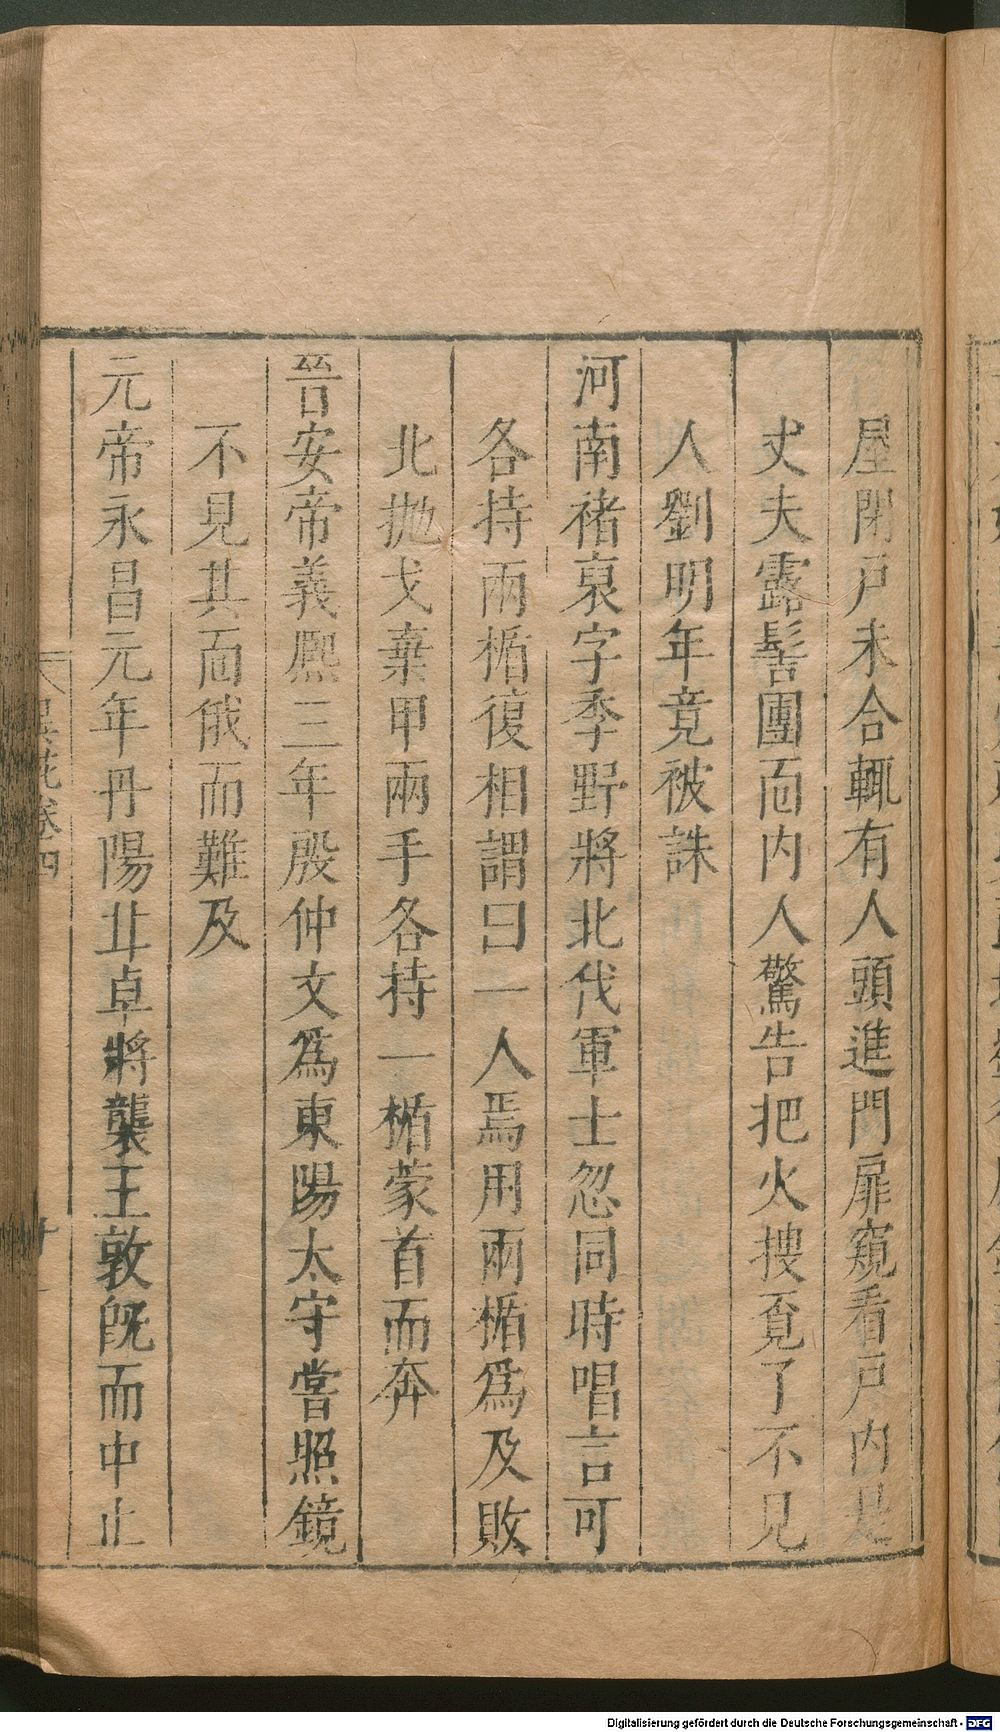 屋閉戸未合輒有人頭進門扉窺看戸内是
丈夫露髻團面内人驚告把火搜覓了不見
人劉明年竟被誅
河南褚裒字季野將北伐軍士忽同時唱言可
各持兩楯復相謂曰一人焉用兩楯爲及敗
北抛戈棄甲兩手各持一楯蒙首而奔
晉安帝義熈三年殷仲文爲東陽太守嘗照鏡
不見其面俄而難及
元帝永昌元年丹陽甘卓將襲王敦旣而中止
異苑卷四
Digitalisierung gefördert durch die Deutsche Forschungsgemeinschaft - DFG